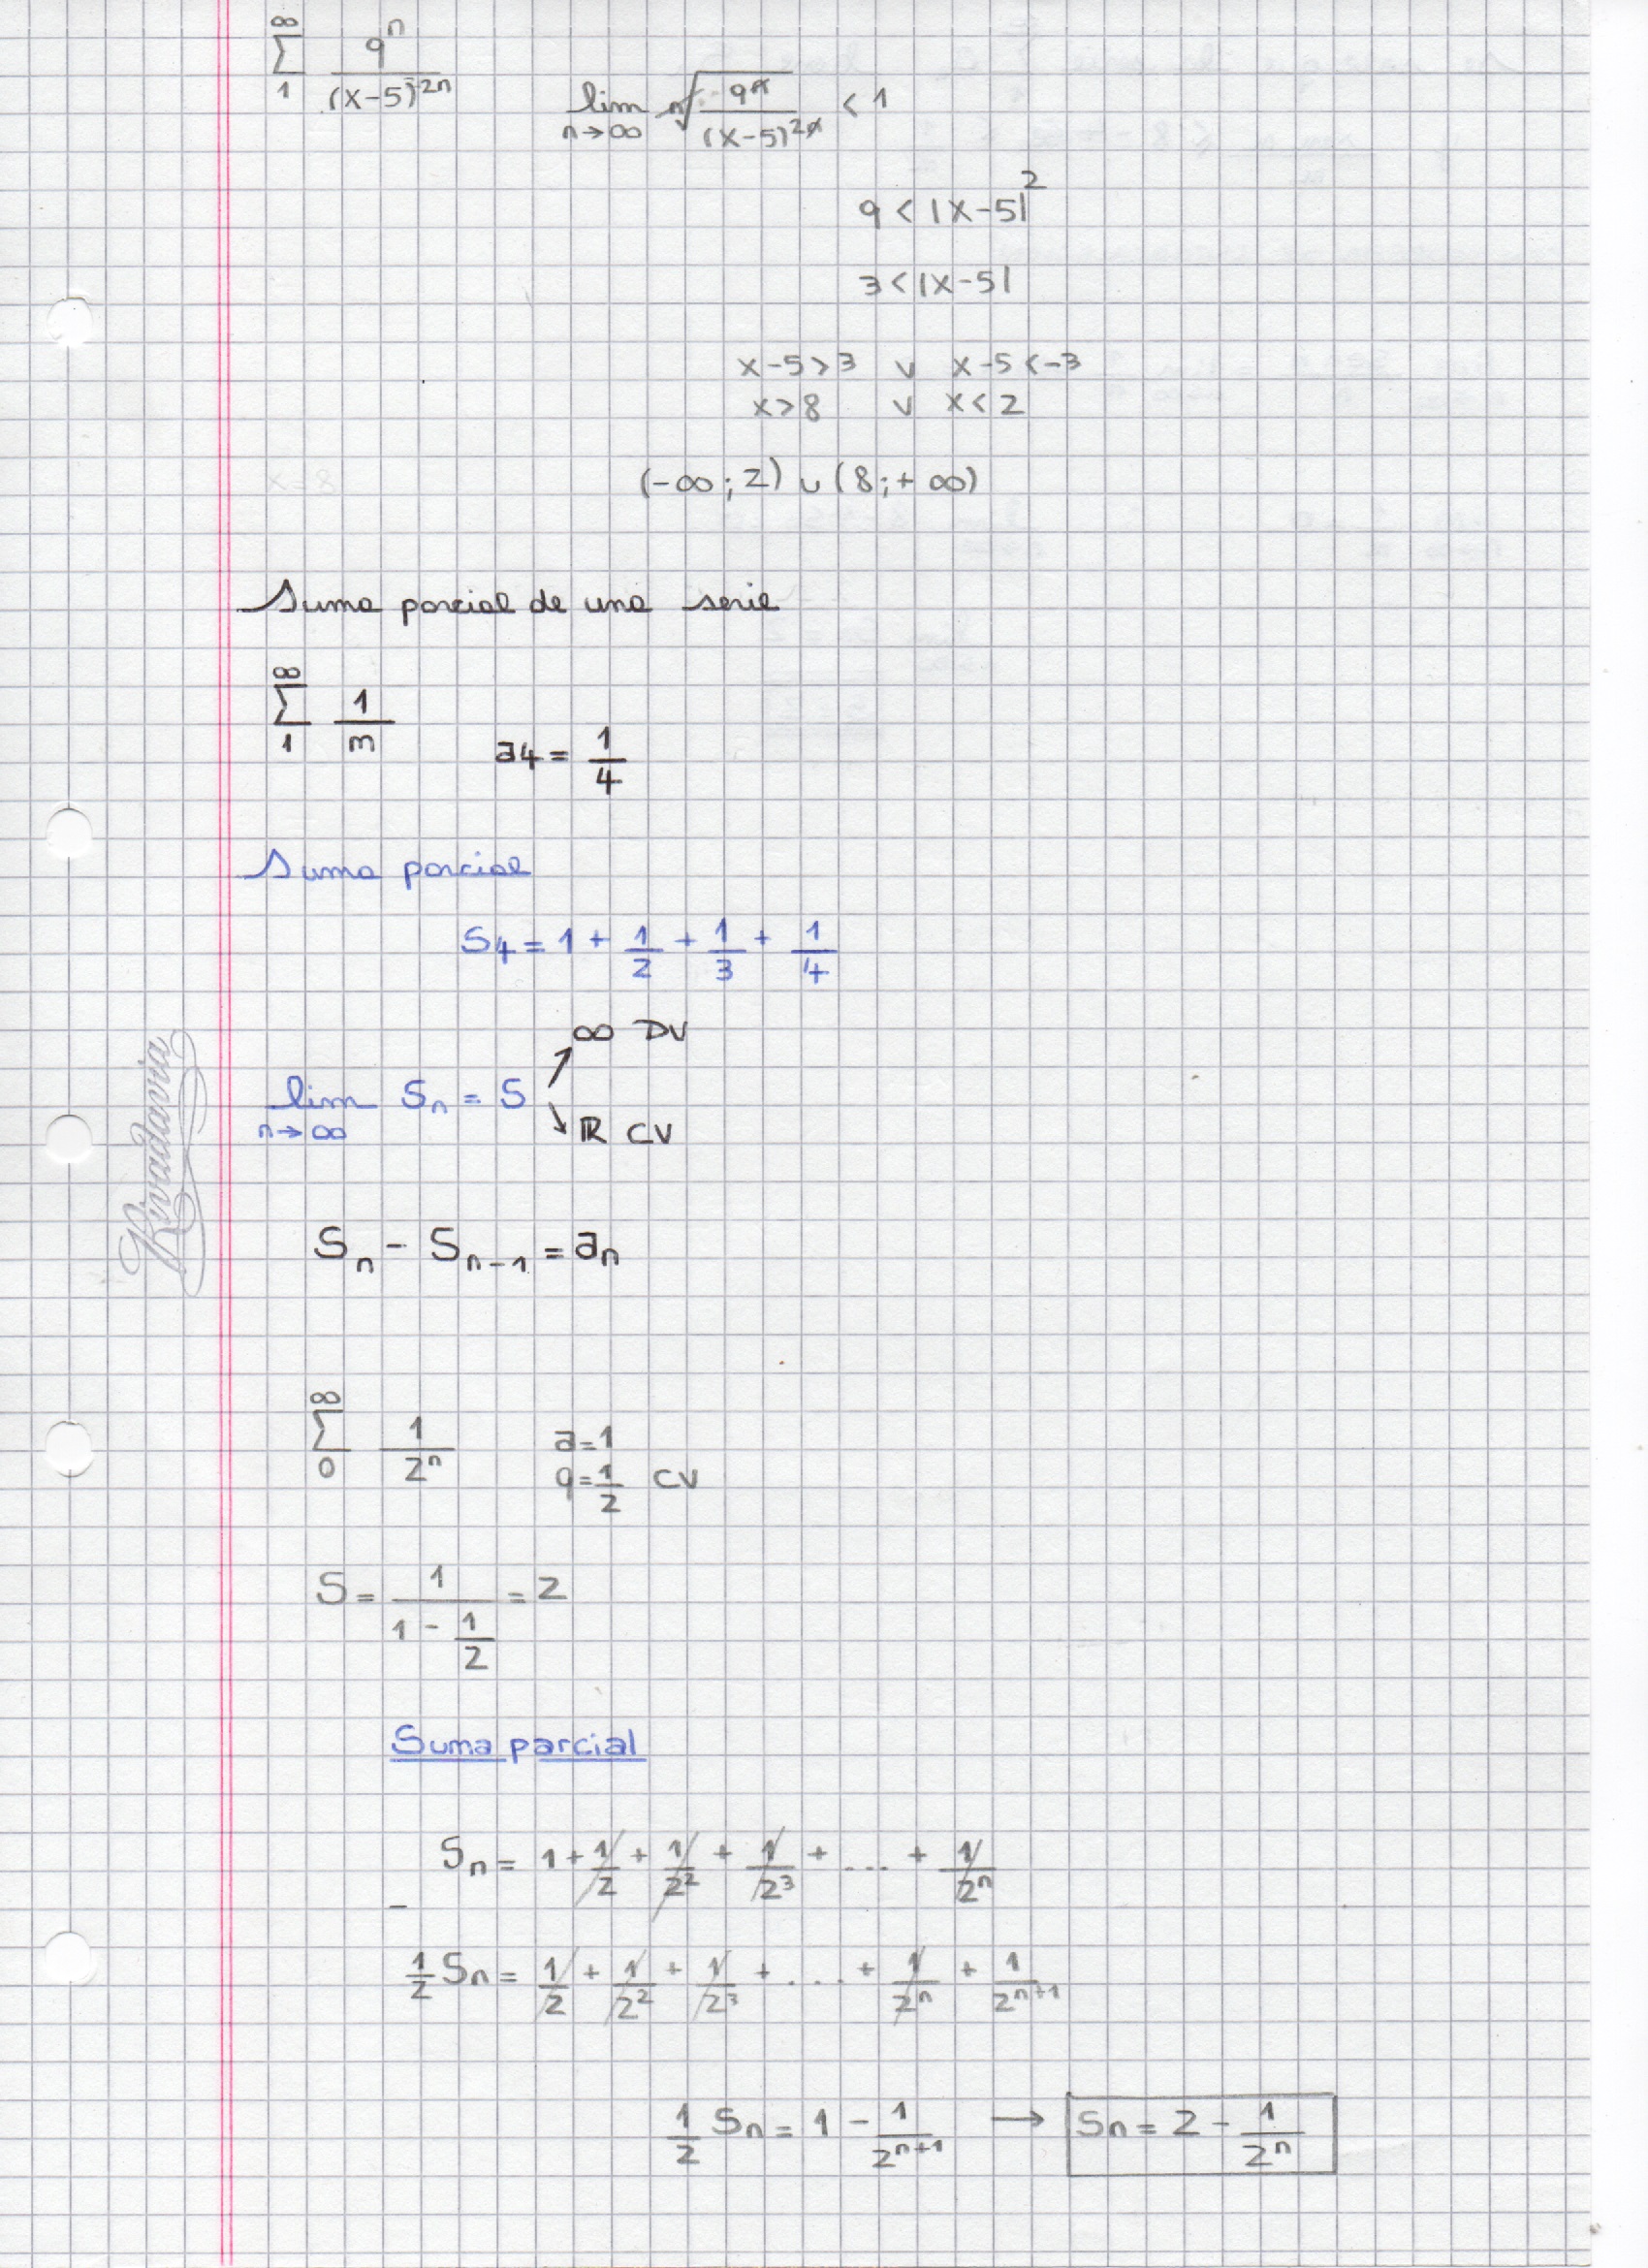 ∑_1^∞ 9^n/(x-5)^{2n}
lim_{n→∞} ⁿ√(9^n/(x-5)^{2n}) < 1
9 < |x-5|^2
3 < |x-5|
x-5>3 ∨ x-5<-3
x>8 ∨ x<2
(-∞; 2) ∪ (8; +∞)
Suma parcial de una serie
∑_1^∞ 1/m
a4 = 1/4
Suma parcial
S4 = 1 + 1/2 + 1/3 + 1/4
∞ DV
lim_{n→∞} S_n = S
ℝ CV
Rivadavia
S_n - S_{n-1} = a_n
∑_0^∞ 1/2^n
a=1
q=1/2 CV
S = 1/(1 - 1/2) = 2
Suma parcial
S_n = 1 + 1/2 + 1/2^2 + 1/2^3 + ... + 1/2^n
-
1/2 S_n = 1/2 + 1/2^2 + 1/2^3 + .... + 1/2^n + 1/2^{n+1}
1/2 S_n = 1 - 1/2^{n+1} → S_n = 2 - 1/2^n